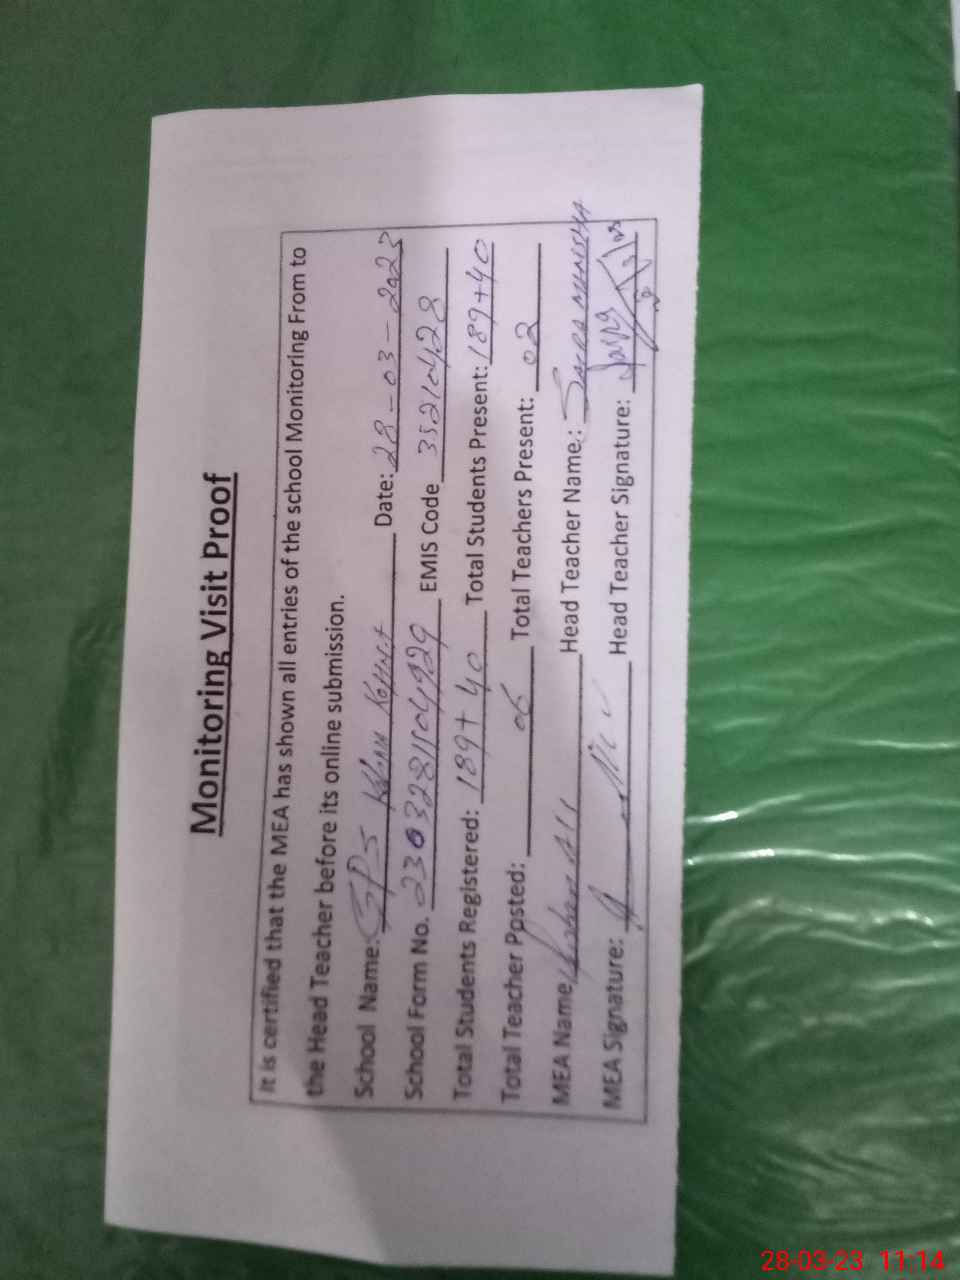 Monitoring Visit Proof
It is certified that the MEA has shown all entries of the school Monitoring From to
the Head Teacher before its online submission.
School Name: GPS Date: 28-03-2023
School Form No. EMIS Code 35210428
Total Students Registered: 189+40 Total Students Present: 189+40
Total Teacher Posted: 06 Total Teachers Present: 02
MEA Name: Ali Head Teacher Name.:
MEA Signature: Head Teacher Signature:
28-03-23 11:14